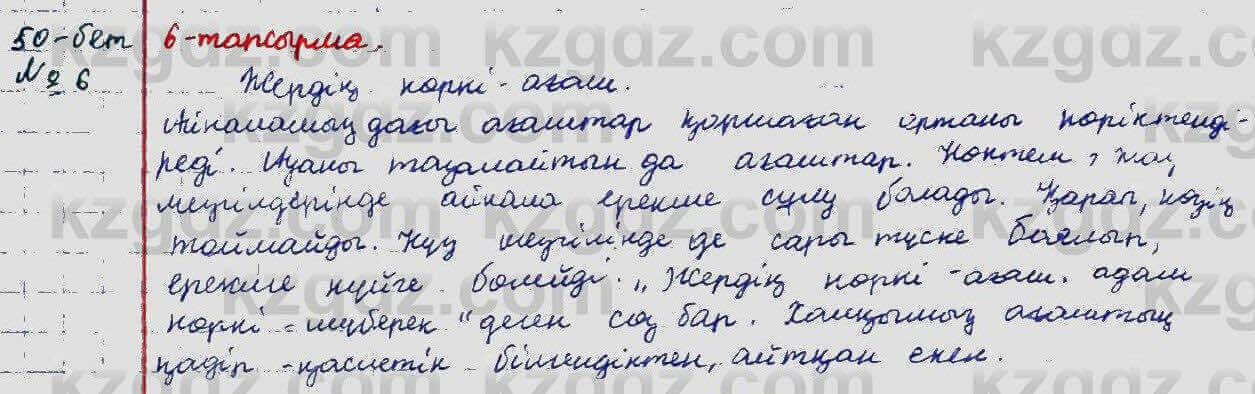 50-бет 6-тапсырма.
№ 6 Жердің көркі - ағаш.
Айналамыздағы ағаштар қоршаған ортаны көріктенді-
реді. Ауаны тазалайтын да ағаштар. Көктем, жаз
мезгілдерінде айнала ерекше сұлу болады. Қарап, көзің
тоймайды. Күз мезгілінде де сары түске боялып,
ерекше күйге бөлейді. „Жердің көркі - ағаш. адам
көркі - шүберек" деген сөз бар. Халқымыз ағаштың
қадір-қасиетін білгендіктен, айтқан екен.
kzgdz.com